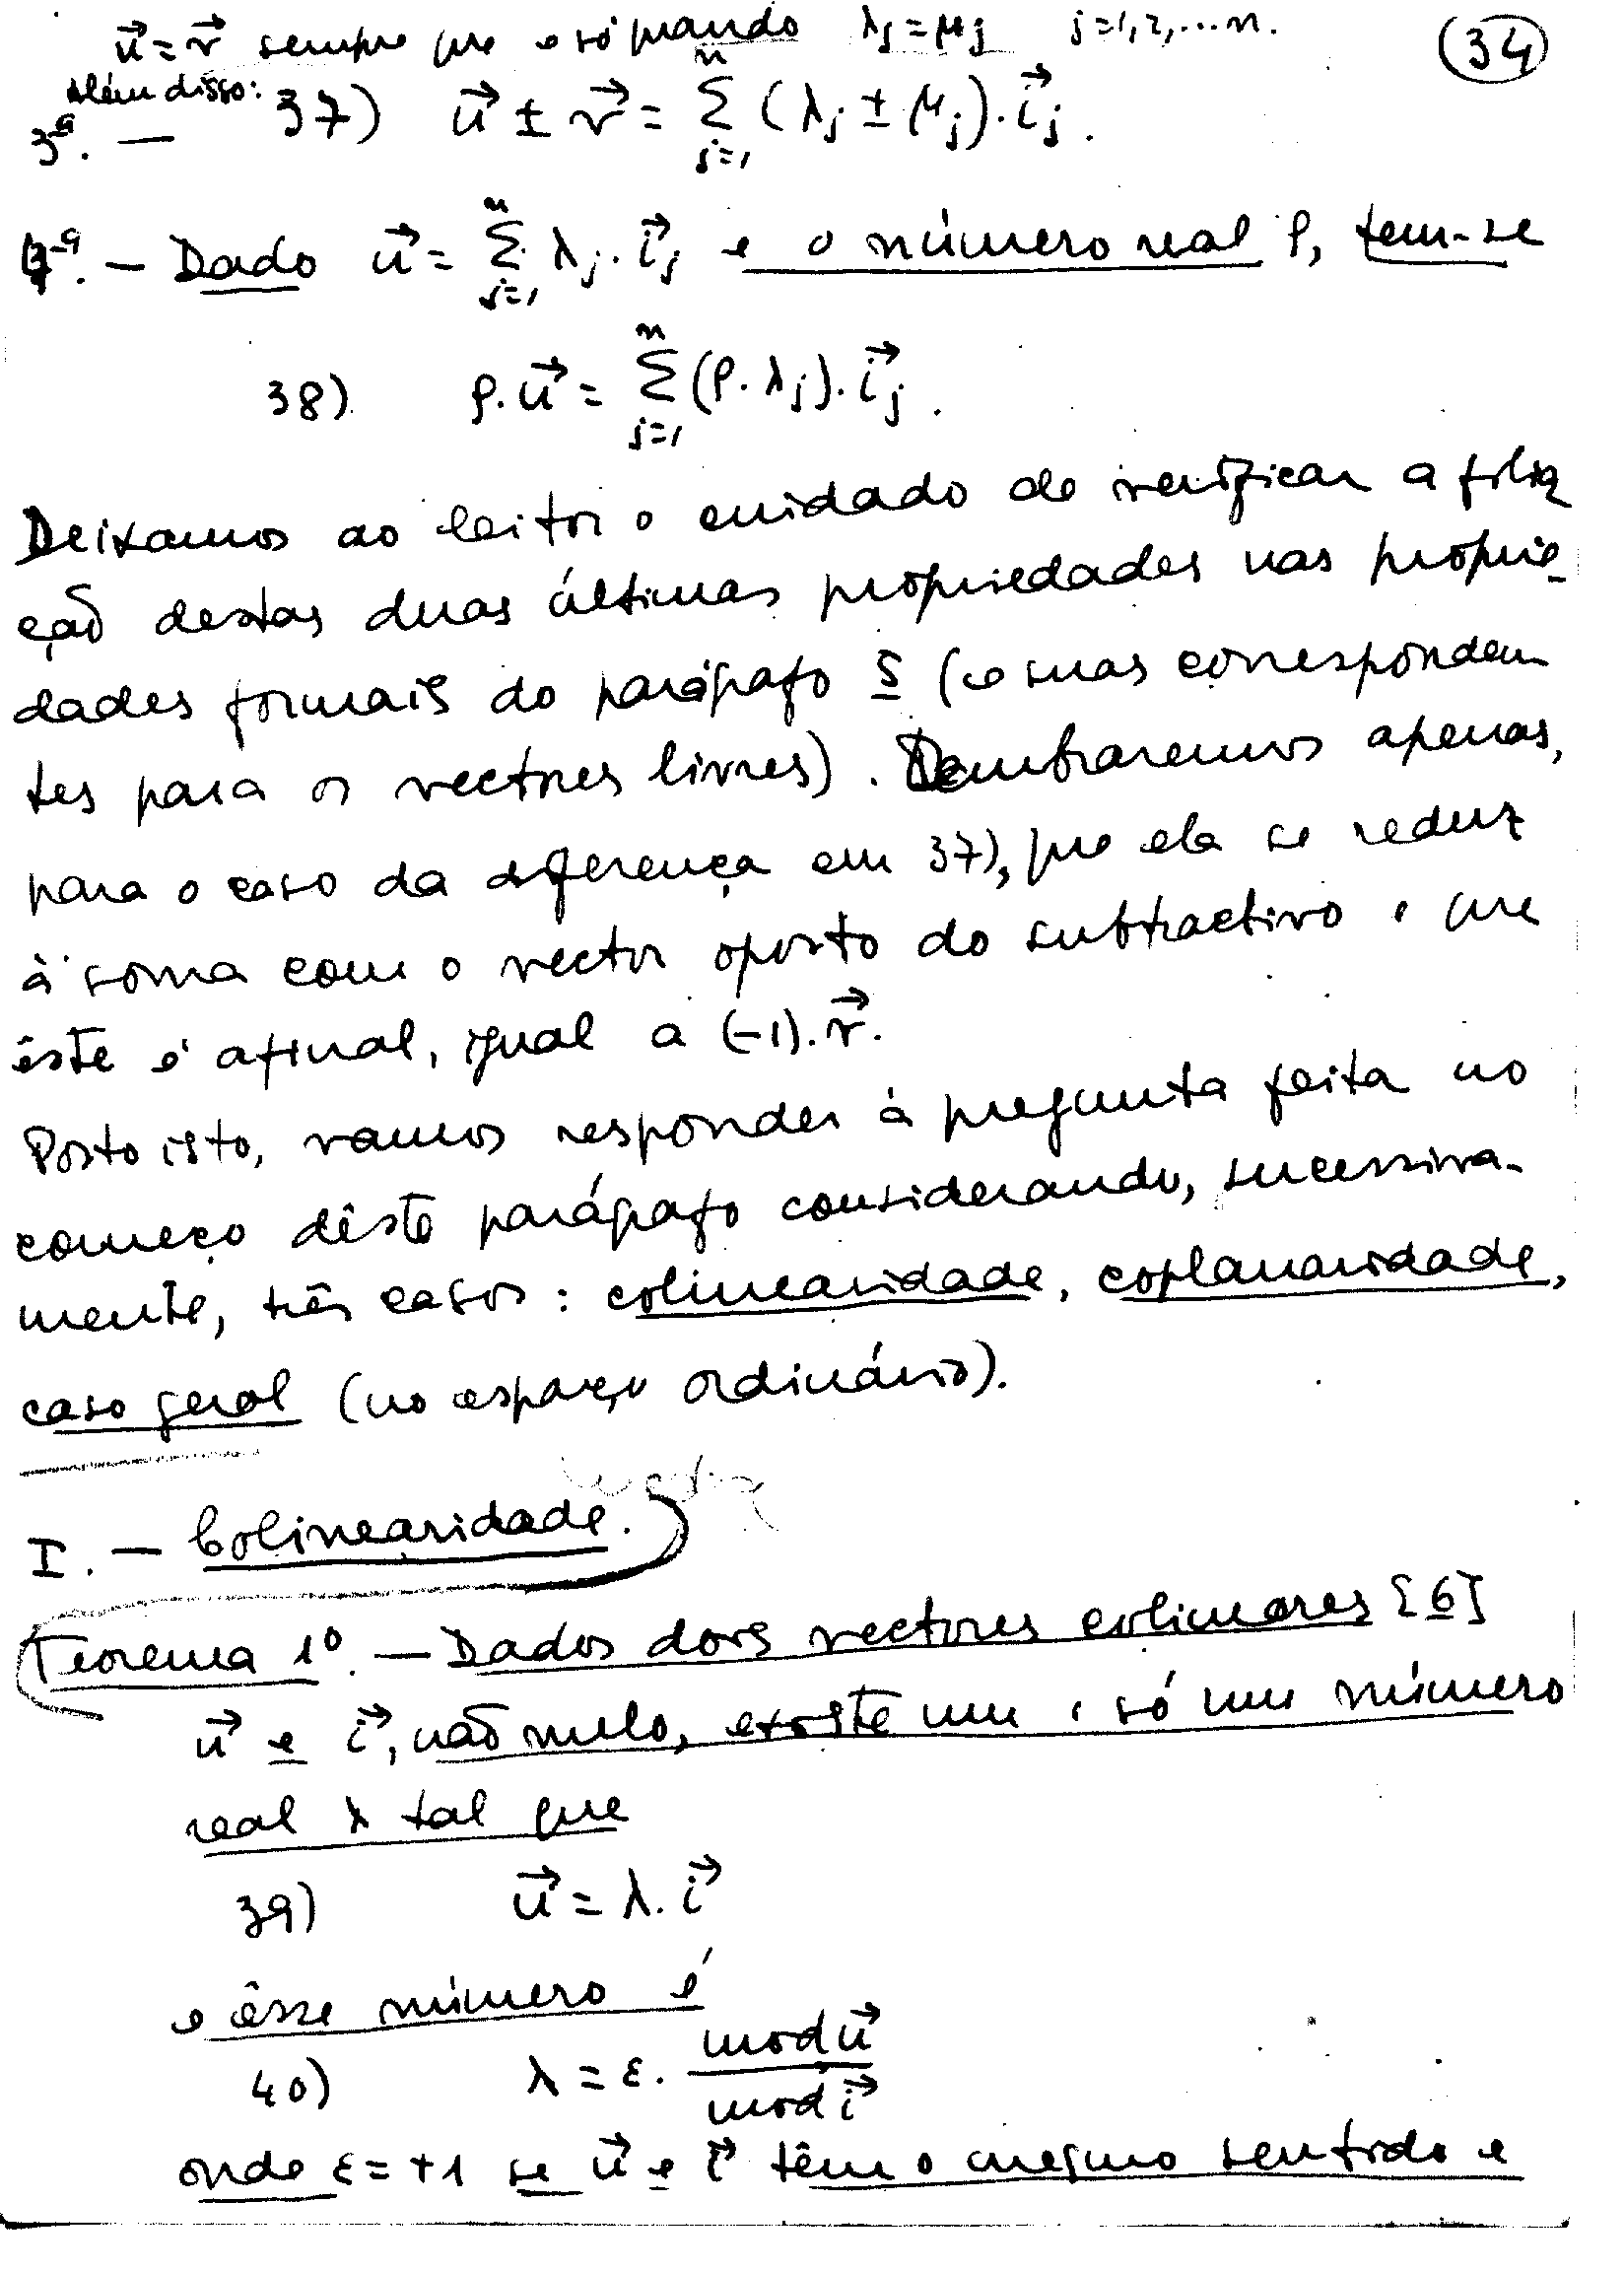 (34)
u⃗ = v⃗ sempre que e só quando λj = μj j=1,2,...n.
Além disso:
3ª. — 37) u⃗ ± v⃗ = Σ_{j=1}^{n} (λj ± μj). i⃗j.
4ª. — Dado u⃗ = Σ_{j=1}^{n} λj. i⃗j e o número real ρ, tem-se
38) ρ. u⃗ = Σ_{j=1}^{n} (ρ. λj). i⃗j.
Deixamos ao leitor o cuidado de verificar a filia
ção destas duas últimas propriedades nas proprie-
dades formais do parágrafo 5 (e suas corresponden
tes para os vectores livres). Lembraremos apenas,
para o caso da diferença em 37), que ela se reduz
à soma com o vector oposto do subtractivo e que
êste é afinal, igual a (-1). v⃗.
Posto isto, vamos responder à pregunta feita no
começo dêste parágrafo considerando, sucessiva-
mente, três casos: colinearidade, coplanaridade,
caso geral (no espaço ordinário).
I. — Colinearidade.
Teorema 1º. — Dados dois vectores colineares [6]
u⃗ e i⃗, não nulo, existe um e só um número
real λ tal que
39) u⃗ = λ. i⃗
e êsse número é
40) λ = ε. mod u⃗ / mod i⃗
onde ε = +1 se u⃗ e i⃗ têm o mesmo sentido e